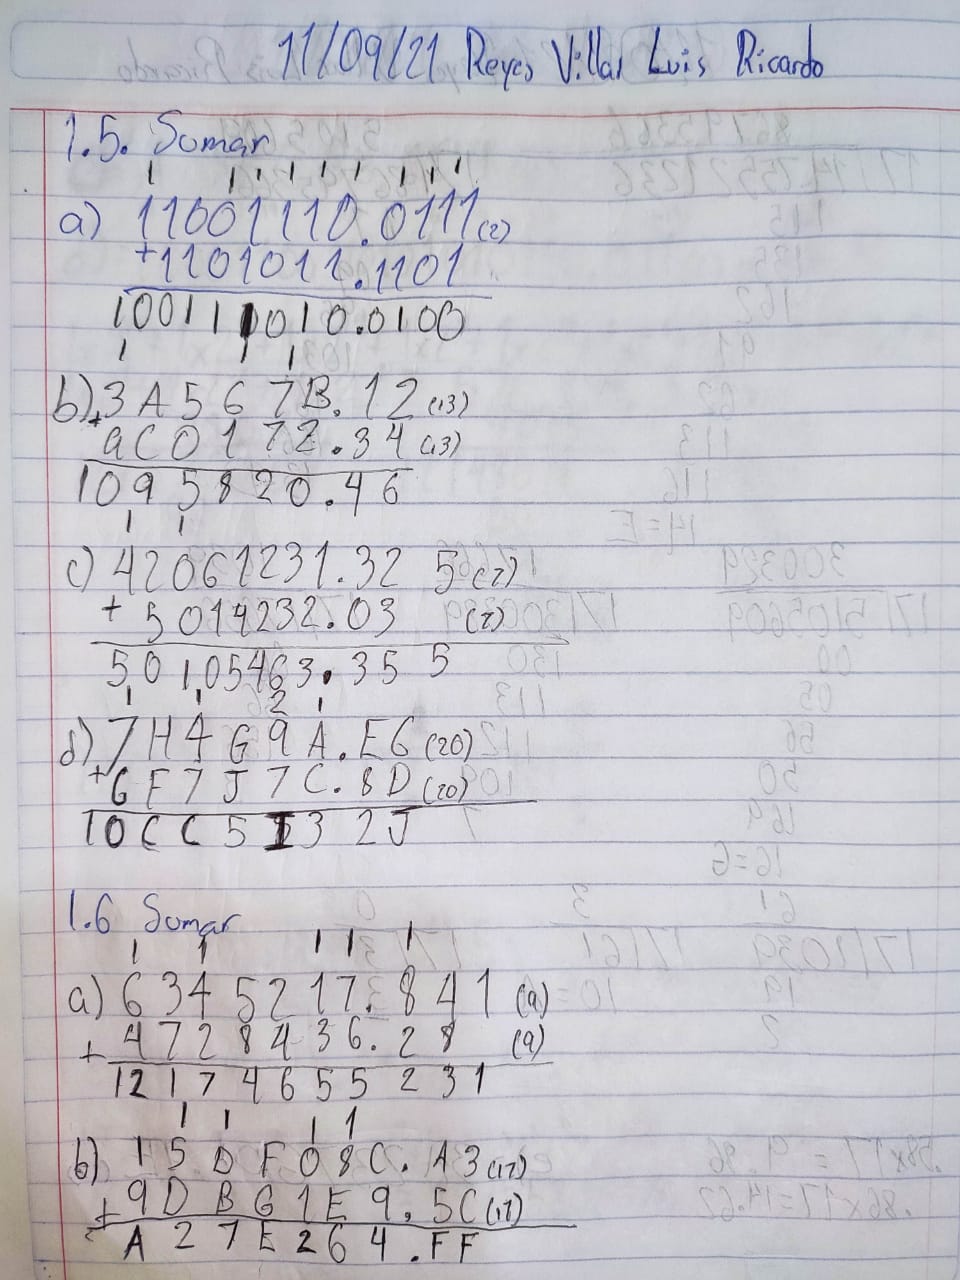 11/09/21 Reyes Villar Luis Ricardo
1.5. Sumar
1 1 1 1 1 1 1 1 1
a) 11001110.0111(2)
+1101011.1101
100111010.0100
1 1 1
b) 3 A 5 6 7 B. 1 2 (13)
+ 9 C 0 1 7 2 . 3 4 (13)
1 0 9 5 8 2 0 . 4 6
1 1
c) 42061231.32 5 (7)
+ 5014232.03 (7)
5 0 1 0 5 4 6 3 . 3 5 5
1 1 2 1
d) 7 H 4 G 9 A . E 6 (20)
+ 6 F 7 J 7 C . 8 D (20)
1 0 C C 5 I 3 2 J
1.6 Sumar
1 1 1 1 1
a) 6 3 4 5 2 1 7. 8 4 1 (9)
+ 4 7 2 8 4 3 6. 2 8 (9)
1 2 1 7 4 6 5 5 2 3 1
1 1 1 1
b) 1 5 D F 0 8 C. A 3 (17)
+ 9 D B G 1 E 9. 5 C (17)
A 2 7 E 2 6 4 . F F